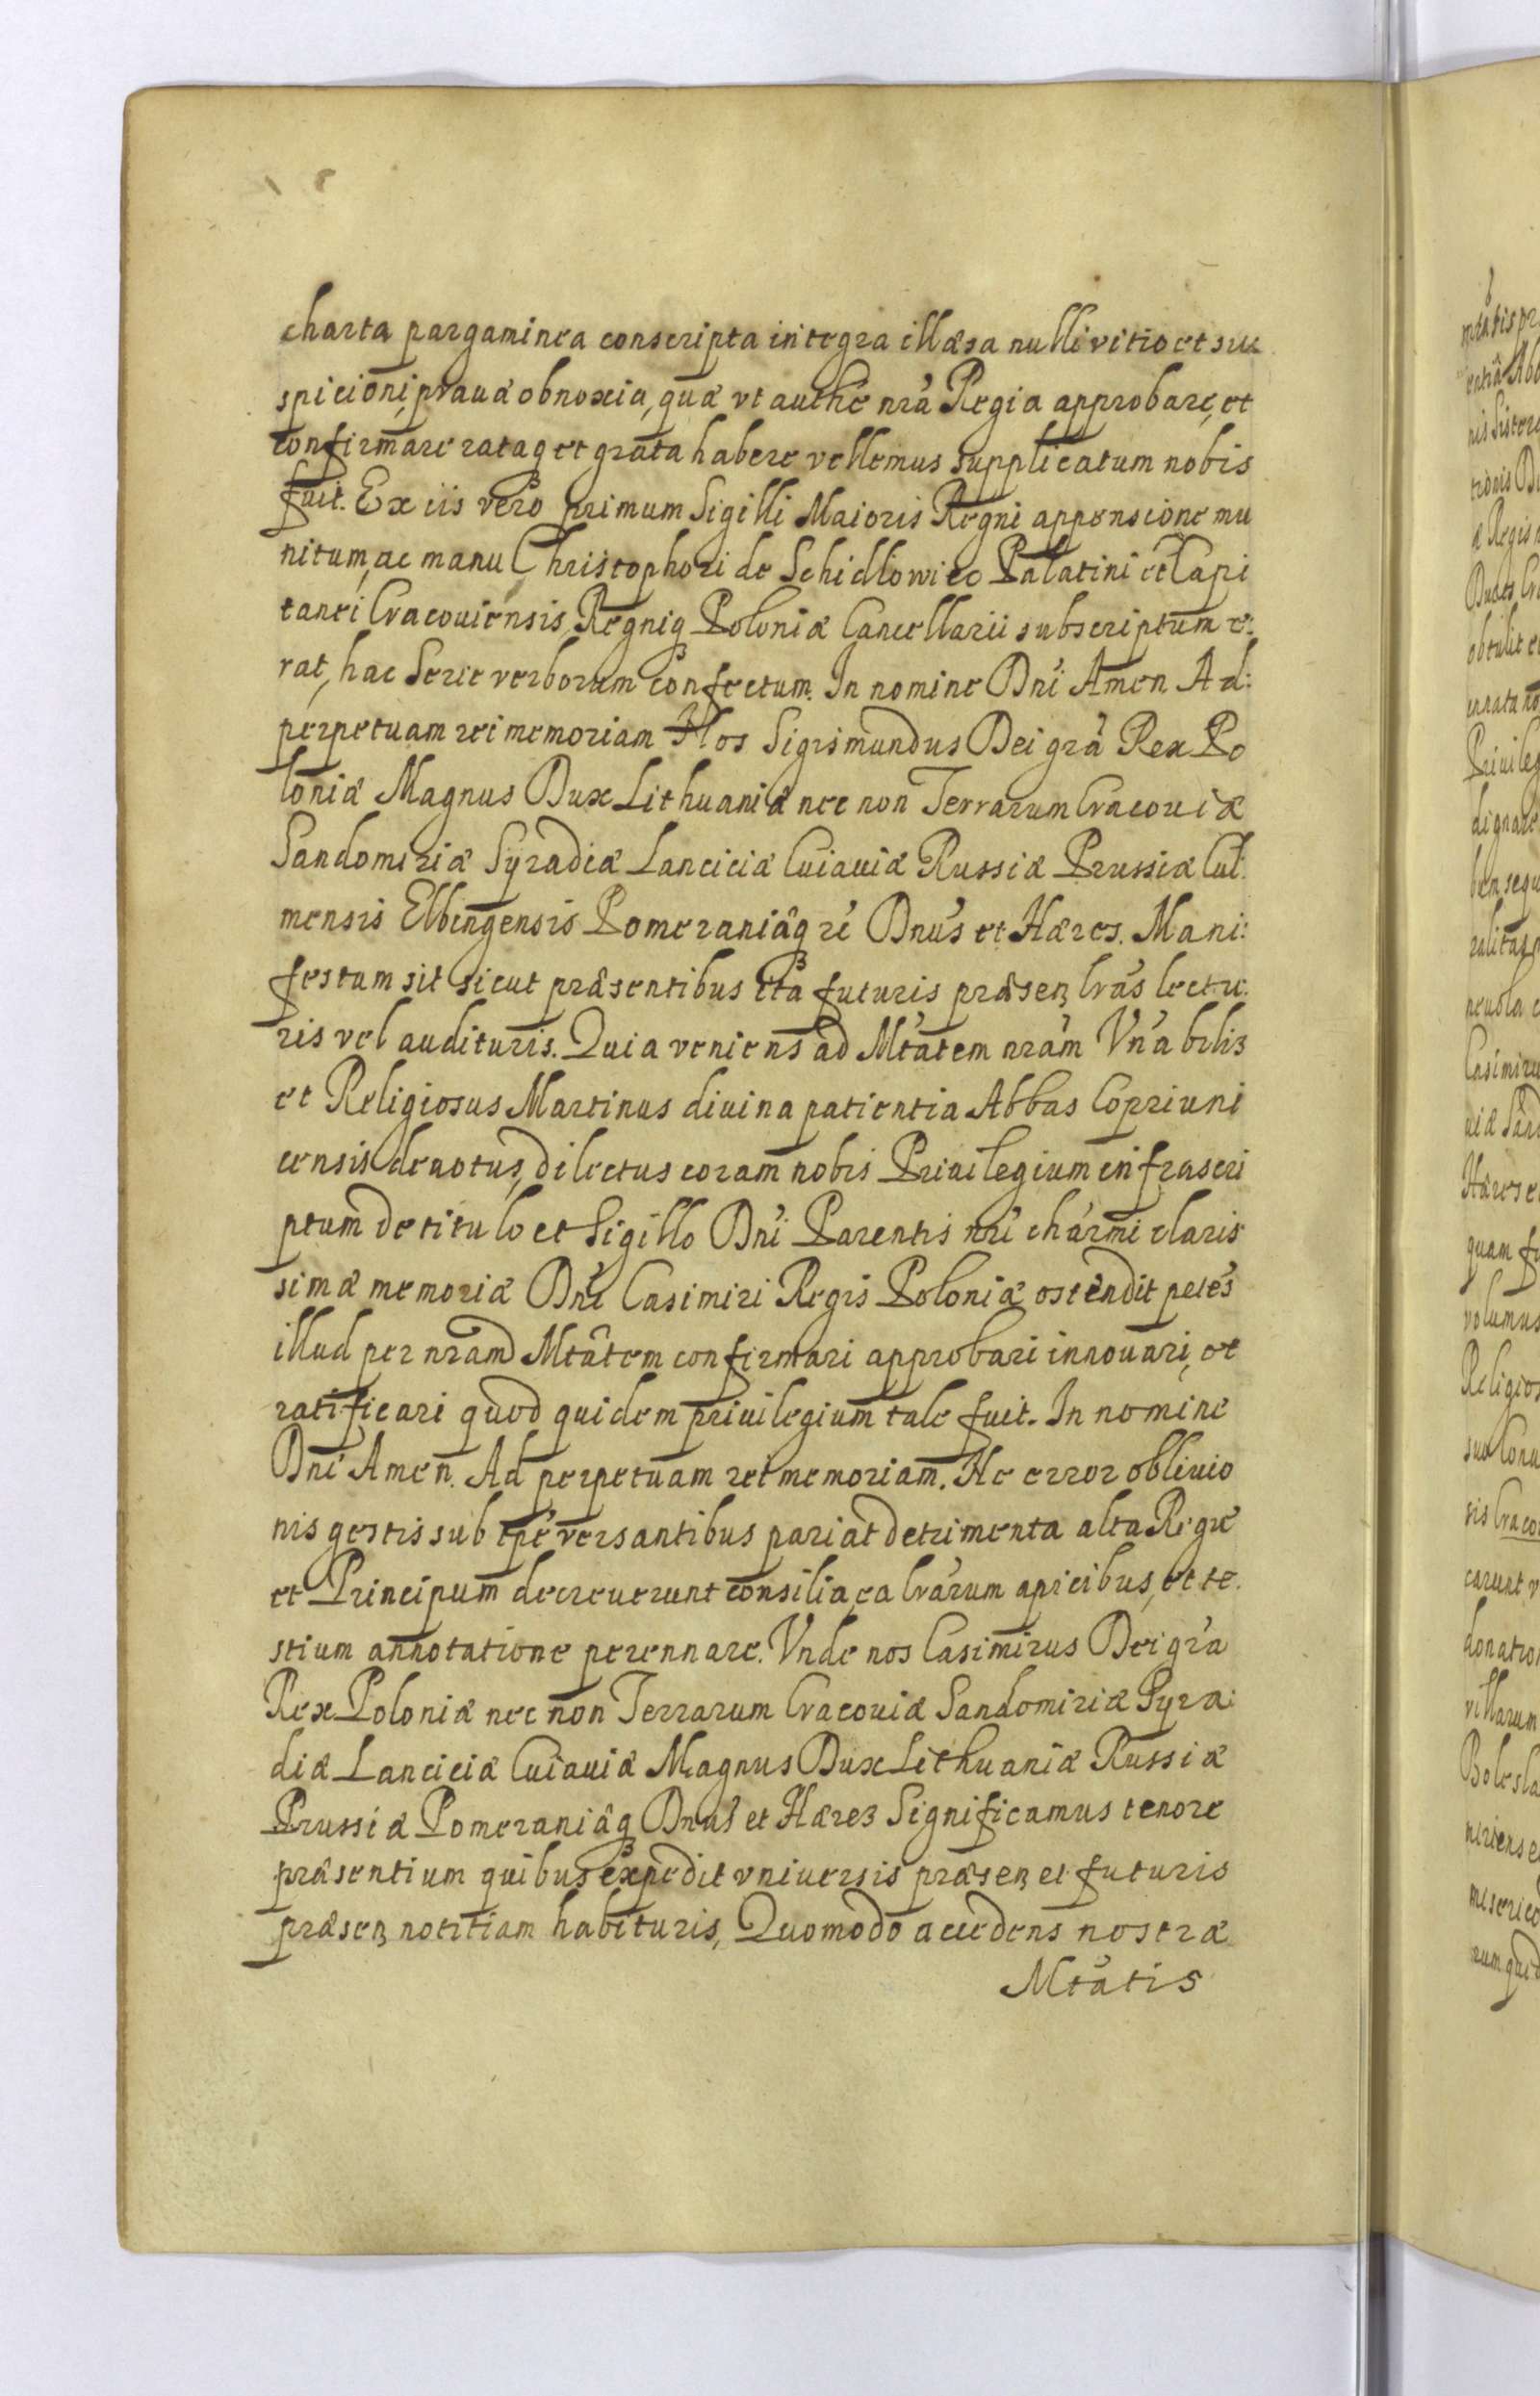 charta pargaminea conscripta integra illæsa nulli vitio et su
spicioni, prauæ obnoxia, quæ vt authe nrá Regia approbare, et
confirmare rataq et grata habere vellemus supplicatum nobis
fuit. Ex iis vero primum Sigilli Maioris Regni appensione mu
nitum, ac manu Christophori de Schidlowiec Palatini et Capi
tanei Cracouiensis, Regniq Poloniæ Cancellarii subscriptum e:
rat, hac Serie verborum confectum. In nomine Dni Amen Ad:
perpetuam rei memoriam Nos Sigismundus Dei grá Rex Po
loniæ Magnus Dux Lithuaniæ nec non Terrarum Cracouiæ
Sandomiriæ Syradiæ Lanciciæ Cuiauiæ Russiæ Prussiæ Cul:
mensis Elbingensis Pomeraniæq ré Dnus et Hæres. Mani:
festum sit sicut præsentibus ita futuris præsenz lrás lectu:
ris vel audituris. Quia veniens ad Mtátem nrám Vnábilis
et Religiosus Martinus diuina patientia Abbas Copriuni
censis deuotus, dilectus coram nobis Priuilegium infrascri
ptum de titulo et Sigillo Dni Parentis nri chármi claris
simæ memoriæ Dni Casimiri Regis Poloniæ ostendit petés
illud per nram Mtâtem confirmari approbari innouari, et
ratificari quod quidem priuilegium tale fuit. In nomine
Dni Amen. Ad perpetuam rei memoriam. Ne error obliuio
nis gestis sub tpé versantibus pariat detrimenta alta Regū
et Principum decreuerunt consilia, ea lrárum apicibus, et te:
stium annotatione perennare. Vnde nos Casimirus Dei grá
Rex Poloniæ nec non Terrarum Cracouiæ Sandomiriæ Syra:
diæ Lanciciæ Cuiauiæ Magnus Dux Lithuaniæ Russiæ
Prussiæ Pomeraniæq Dnus et Hærez Significamus tenore
præsentium quibus expedit vniuersis præsenz et futuris
præsenz notitiam habituris, Quomodo accedens nostræ
Mtátis